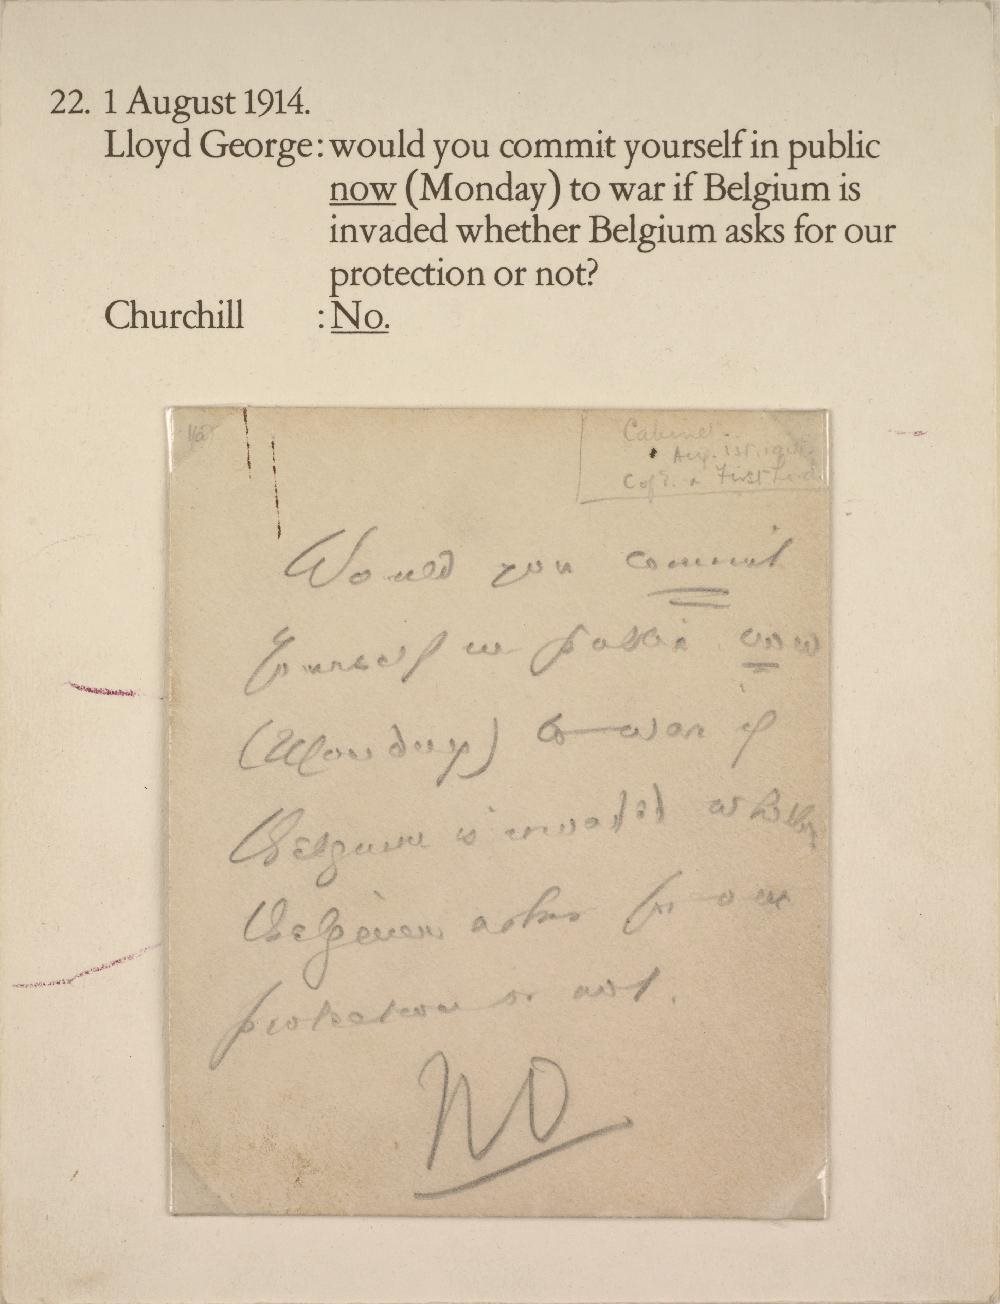 22. 1 August 1914.
Lloyd George: would you commit yourself in public
now (Monday) to war if Belgium is
invaded whether Belgium asks for our
protection or not?
Churchill : No.
Cabinet.
Aug. 1st. 1914.
C of E. & First Lord
Would you commit
yourself in public now
(Monday) to war if
Belgium is invaded whether
Belgium asks for our
protection or not.
NO